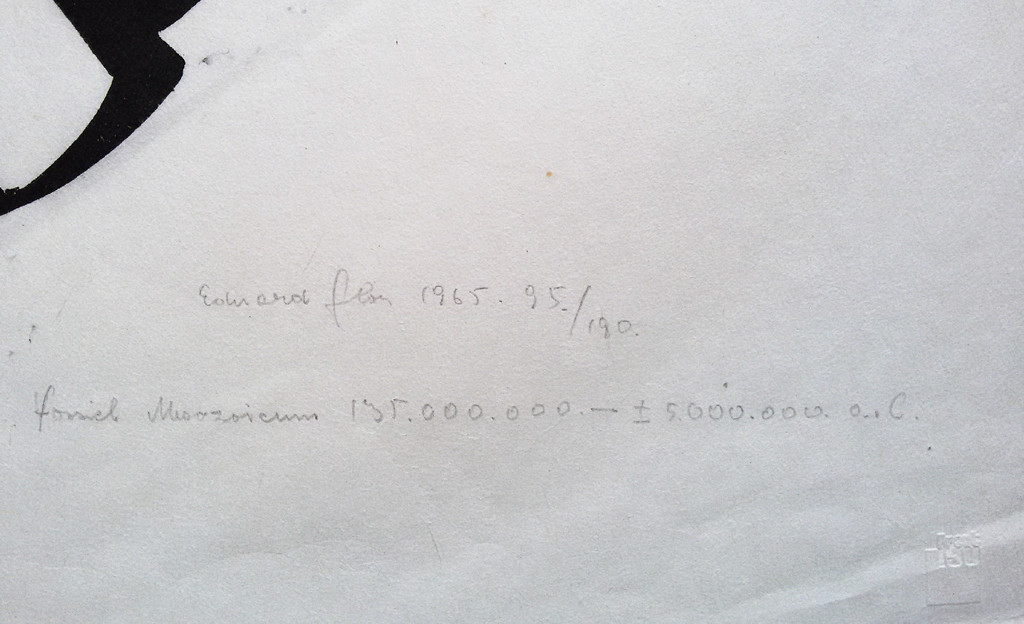 Eduard Flor 1965. 95./190.
fossiel Mesozoicum 135.000.000.— ± 5.000.000. a.C.
150